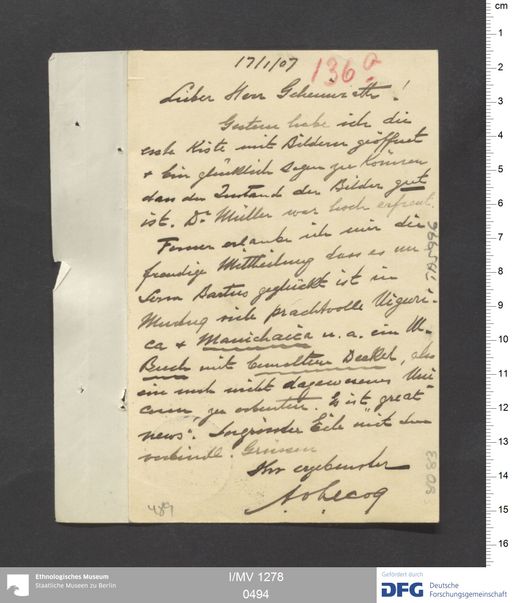 17/1/07
136a
Lieber Herr Geheimrath!
Gestern habe ich die
erste Kiste mit Bildern geöffnet
+ bin glücklich sagen zu können
dass der Zustand der Bilder gut
ist. Dr Müller war hoch erfreut.
Ferner erlaube ich mir die
freudige Mittheilung dass es un-
serm Bartus geglückt ist in
Murtuq viele prachtvolle Uiguri-
ca + Manichaica u. a. ein M-
Buch mit bemaltem Deckel, also
ein noch nicht dagewesenes Uni-
cum, zu erbeuten. Es ist "great
news". In grösster Eile mit den
verbindl. Grüssen
Ihr ergebenster
A v Lecoq
489
cm
1
2
3
4
5
6
7
8
9
10
11
12
13
14
15
16
Ethnologisches Museum
Staatliche Museen zu Berlin
I/MV 1278
0494
Gefördert durch
DFG Deutsche
Forschungsgemeinschaft